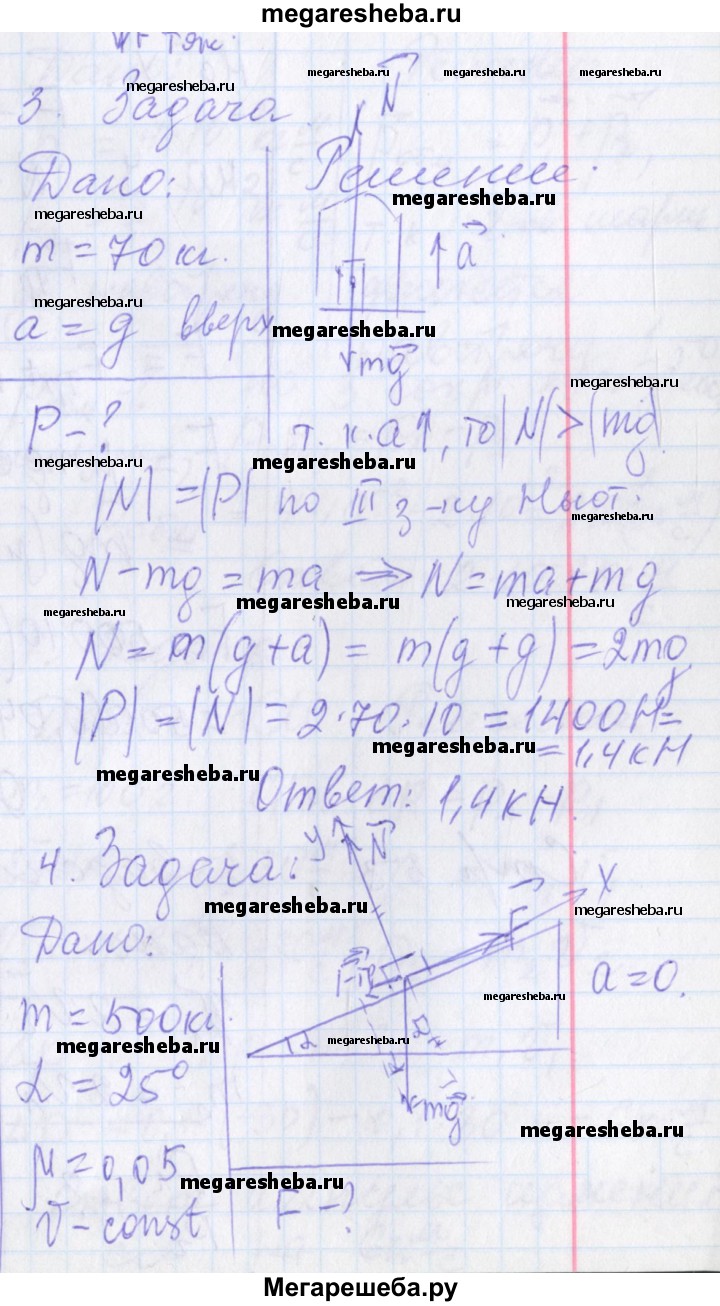 megaresheba.ru
F тяж.
megaresheba.ru megaresheba.ru megaresheba.ru
3. Задача. N
Дано: Решение.
megaresheba.ru megaresheba.ru
m = 70 кг. a
megaresheba.ru
a = g вверх megaresheba.ru
mg
megaresheba.ru
P - ? т.к. a↑, то |N| > |mg|
megaresheba.ru megaresheba.ru
|N| = |P| по III з-ну Ньют.
megaresheba.ru
N - mg = ma => N = ma + mg
megaresheba.ru megaresheba.ru megaresheba.ru
N = m(g + a) = m(g + g) = 2mg
|P| = |N| = 2·70·10 = 1400Н =
megaresheba.ru = 1,4 кН
megaresheba.ru
Ответ: 1,4 кН.
4. Задача. y N
X
megaresheba.ru megaresheba.ru
Дано: F
a = 0.
m = 500 кг. megaresheba.ru
megaresheba.ru α megaresheba.ru
α = 25°
mg
megaresheba.ru
μ = 0,05
megaresheba.ru
v - const F - ?
Мегарешеба.ру